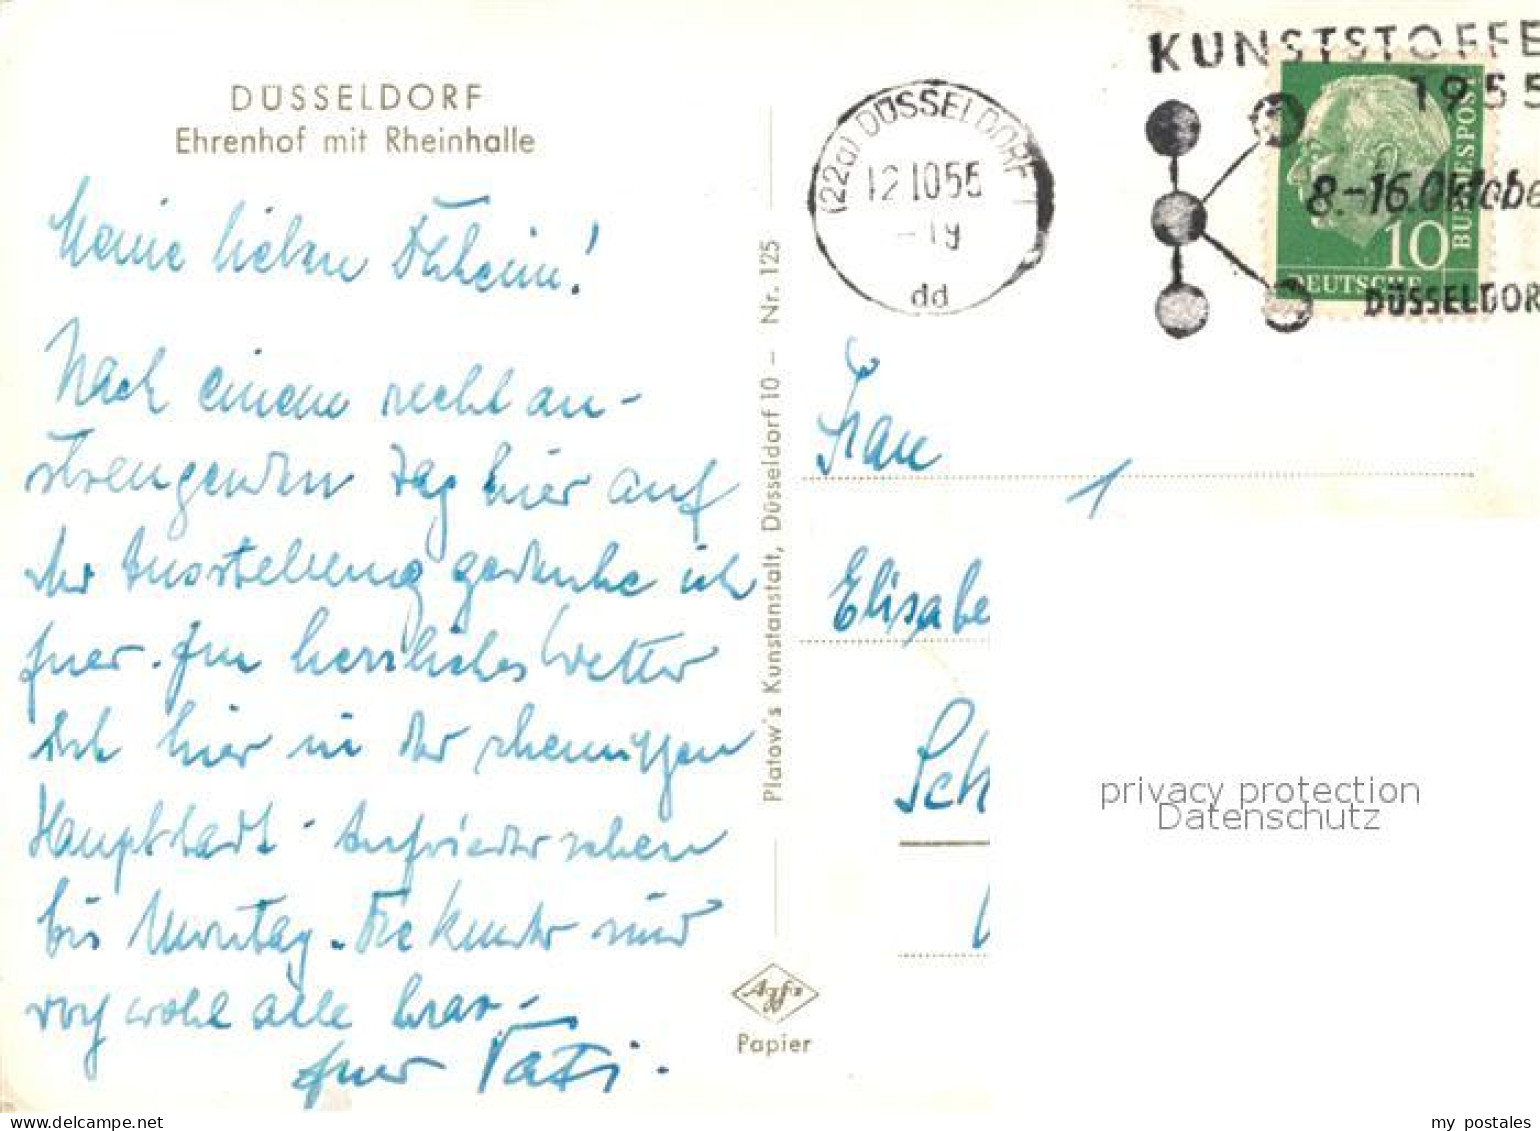 DÜSSELDORF
Ehrenhof mit Rheinhalle
Meine lieben
Nach einem recht an-
strengenden Tag hier auf
der Ausstellung gedenke ich
Euer. Im herrliches Wetter
hier in der
Hauptstadt. Aufwiedersehen
bis Montag. Die Kinder sind
wohl alle brav.
Euer Vati.
Platow's Kunstanstalt, Düsseldorf 10 – Nr. 125
Agfa
Papier
(22a) DÜSSELDORF 1
12.10.55
-19
dd
KUNSTSTOFFE
1955
8.-16.Oktobe
DÜSSELDOR
10
DEUTSCHE
BUNDESPOST
Frau
1
Elisabe
Sch
privacy protection
Datenschutz
delcampe.net
my_postales